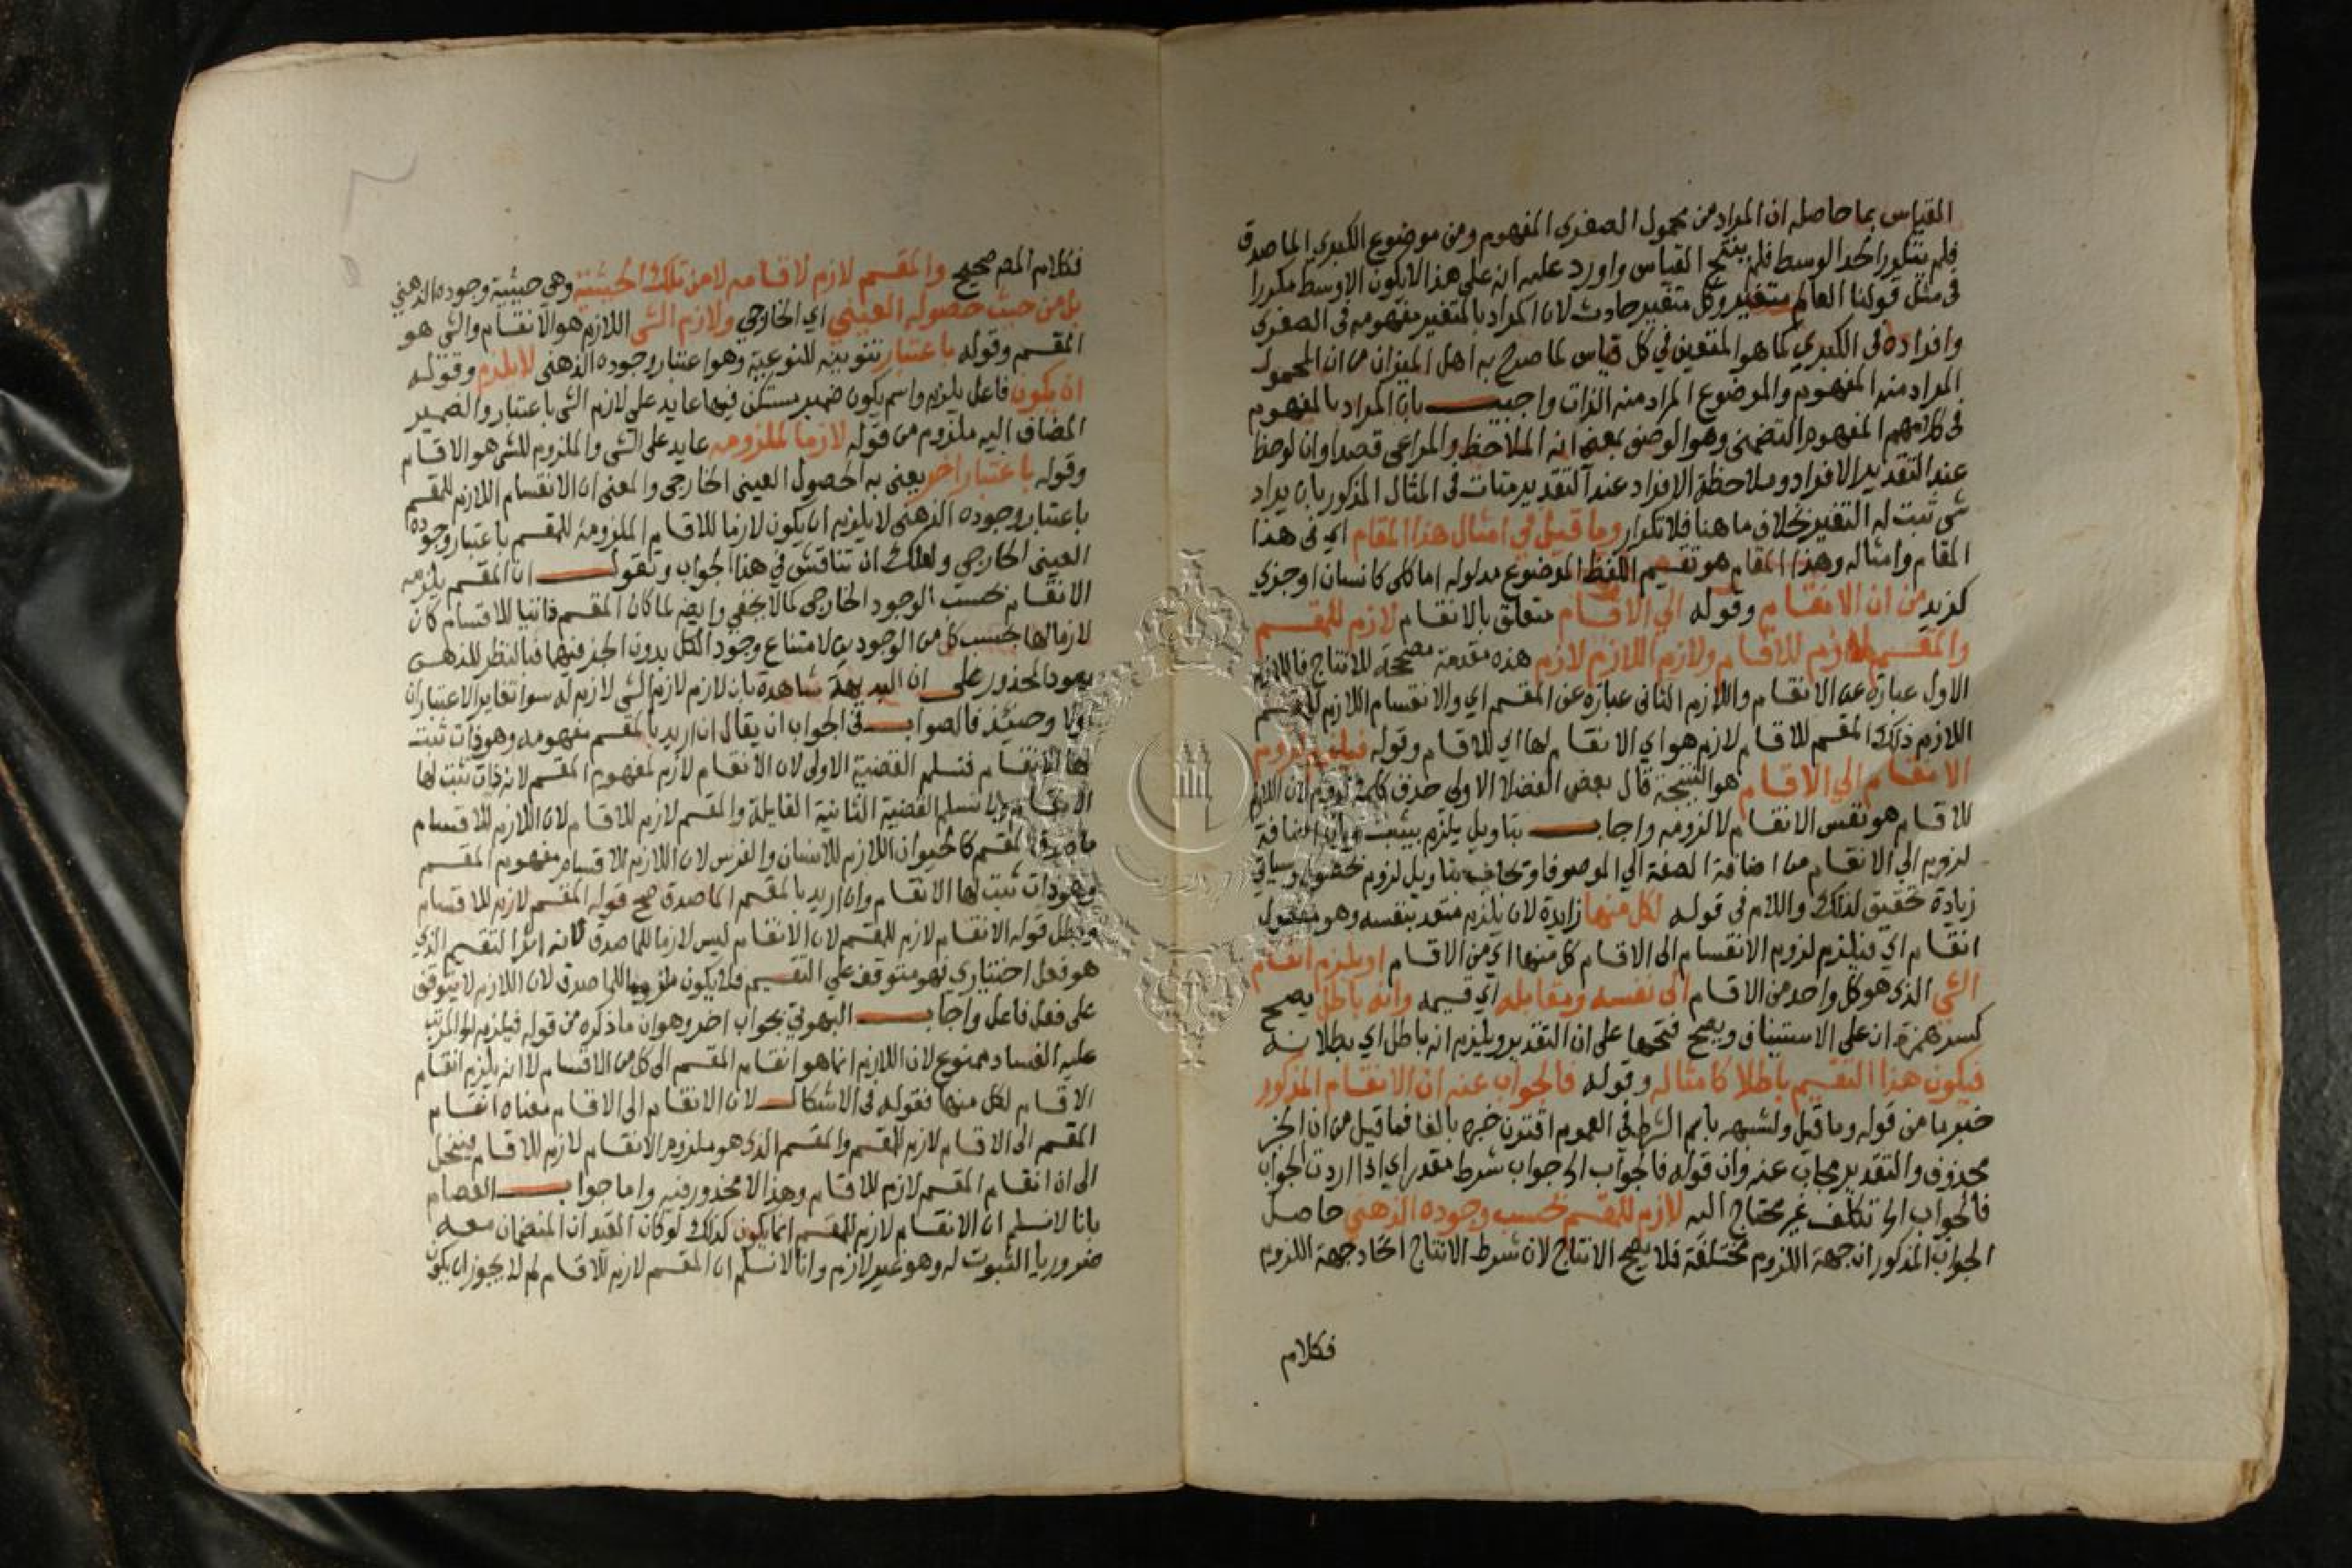 المقياس بما حاصله ان المراد من محمول الصغرى المفهوم ومن موضوع الكبرى الماصدق
فلم يتكرر الحد الوسط فلم ينتج القياس واورد عليه ان على هذا لا يكون الاوسط مكررا
فى مثل قولنا العالم متغير وكل متغير حادث لان المراد بالمتغير مفهومه فى الصغرى
وافراده فى الكبرى كما هو المتعين في كل قياس لما صرح به اهل الميزان من ان المحمول
المراد منه المفهوم والموضوع المراد منه الذات واجيب بان المراد بالمفهوم
فى كلامهم المفهوم التضمنى وهو الوصف بمعنى انه الملاحظ والمراعى قصدا وان لوحظ
عند التقدير الافراد وملاحظة الافراد عند التقدير متات فى المثال المذكور بان يراد
شى ثبت له التغير بخلاف ما هنا فلا تكرار وما قيل في امثال هذا المقام اي فى هذا
المقام وامثاله وهذا المقام هو تقسيم اللفظ الموضوع مدلوله اما كلى كانسان او جزي
كزيد من ان الانقسام وقوله الي الاقسام متعلق بالانقسام لازم للمقسم
والمقسم لازم للاقسام ولازم اللازم لازم هذه مقدمة مصححة للانتاج فاللازم
الاول عبارة عن الانقسام واللازم الثانى عبارة عن المقسم اي والانقسام اللازم للمقسم
اللازم ذلك المقسم للاقسام لازم هو اي الانقسام لها اي للاقسام وقوله فيلزم لزوم
الانقسام الي الاقسام هو النتيجة قال بعض الفضلا الاولى حذف كلمة لزوم لان اللازم
للاقسام هو نفس الانقسام لا لزومه واجاب بتاويل يلزم بيثبت وبان اضافة
لزوم الي الانقسام من اضافة الصفة الي الموصوف او تجاب بتاويل لزوم بحصول وسياتي
زيادة تحقيق لذلك واللام فى قوله لكل منها زايدة لان يلزم متعد بنفسه وهو مفعول
انقسام اي فيلزم لزوم الانقسام الى الاقسام كل منها اي من الاقسام او يلزم انقسام
الشي الذى هو كل واحد من الاقسام الى نفسه ومقابله اي قسيمه وانه باطل يصح
كسر همزة ان على الاستيناف ويصح فتحها على ان التقدير ويلزم انه باطل اي بطلانه
فيكون هذا التقسيم باطلا كامثاله وقوله فالجواب عنه ان الانقسام المذكور
خبر ما من قوله وما قيل ولشبهه باسم الشرط في العموم اقترن خبره بالفا فما قيل من ان الخبر
محذوف والتقدير مجاب عنه وان قوله فالجواب الى جواب شرط مقدر اي اذا اردت الجواب
فالجواب الخ تكلف غير محتاج اليه لازم للمقسم بحسب وجوده الذهني حاصل
الجواب المذكور ان جهة اللزوم مختلفة فلا يصح الانتاج لان شرط الانتاج اتحاد جهة اللزوم
فكلام
فكلام المص صحيح والمقسم لازم لاقسامه لا من تلك الحيثية وهي حيثية وجوده الذهني
بل من حيث حصوله العيني اي الخارجي ولازم الشى اللازم هو الانقسام والشى هو
المقسم وقوله باعتبار تنوينه للنوعية وهو اعتبار وجوده الذهنى لا يلزم وقوله
ان يكون فاعل يلزم واسم يكون ضمير مستكن فيها عايد على لازم الشى باعتبار والضمير
المضاف اليه ملزوم من قوله لازما لملزومه عايد على الشى والملزوم للشى هو الاقسام
وقوله باعتبار اخر يعنى به الحصول العينى الخارجى والمعنى ان الانقسام اللازم للمقسم
باعتبار وجوده الذهنى لا يلزم ان يكون لازما للاقسام الملزومة للمقسم باعتبار وجوده
العينى الخارجى ولعلك ان تناقش في هذا الجواب وتقول ان المقسم يلزمه
الانقسام بحسب الوجود الخارجى كما لا يخفى وايضا لما كان المقسم ذاتيا للاقسام كان
لازما لها بحسب كل من الوجودين لامتناع وجود الكل بدون الجزء فيها فبالنظر للذهنى
يعود المحذور على ان البديهة شاهدة بان لازم لازم الشى لازم له سوا تغاير الاعتباران
اولا وحينئذ فالصواب فى الجواب ان يقال ان اريد بالمقسم مفهومه وهو ذات ثبت
لها الانقسام فنسلم القضية الاولى لان الانقسام لازم لمفهوم المقسم لانه ذات ثبت لها
الانقسام ولا نسلم القضية الثانية القايلة والمقسم لازم للاقسام لان اللازم للاقسام
ماصدق المقسم كالحيوان اللازم للانسان والفرس لان اللازم للاقسام مفهوم المقسم
وهو ذات ثبت لها الانقسام وان اريد بالمقسم الماصدق صح قوله المقسم لازم للاقسام
وبطل قوله الانقسام لازم للمقسم لان الانقسام ليس لازما للماصدق لانه اثر التقسيم الذي
هو فعل اختياري فهو متوقف على التقسيم فلا يكون للماصدق لان اللازم لا يتوقف
على فعل فاعل واجاب البهوتي بجواب اخر وهو ان ما ذكره من قوله فيلزم لزوم المرتب
عليه الفساد ممنوع لان اللازم انما هو انقسام المقسم الى كل من الاقسام لا انه يلزم انقسام
الاقسام لكل منها فقوله فى الاشكال لان الانقسام الى الاقسام معناه انقسام
المقسم الى الاقسام لازم للمقسم والمقسم الذى هو ملزوم الانقسام لازم للاقسام فينحل
الى ان انقسام المقسم لازم للاقسام وهذا لا محذور فيه واما جواب العصام
بانا لا نسلم ان الانقسام لازم للمقسم انما يكون كذلك لو كان القيدان المنضمان معه
ضروريا الثبوت له وهو غير لازم وانا لا نسلم ان المقسم لازم للاقسام لم لا يجوز ان يكون